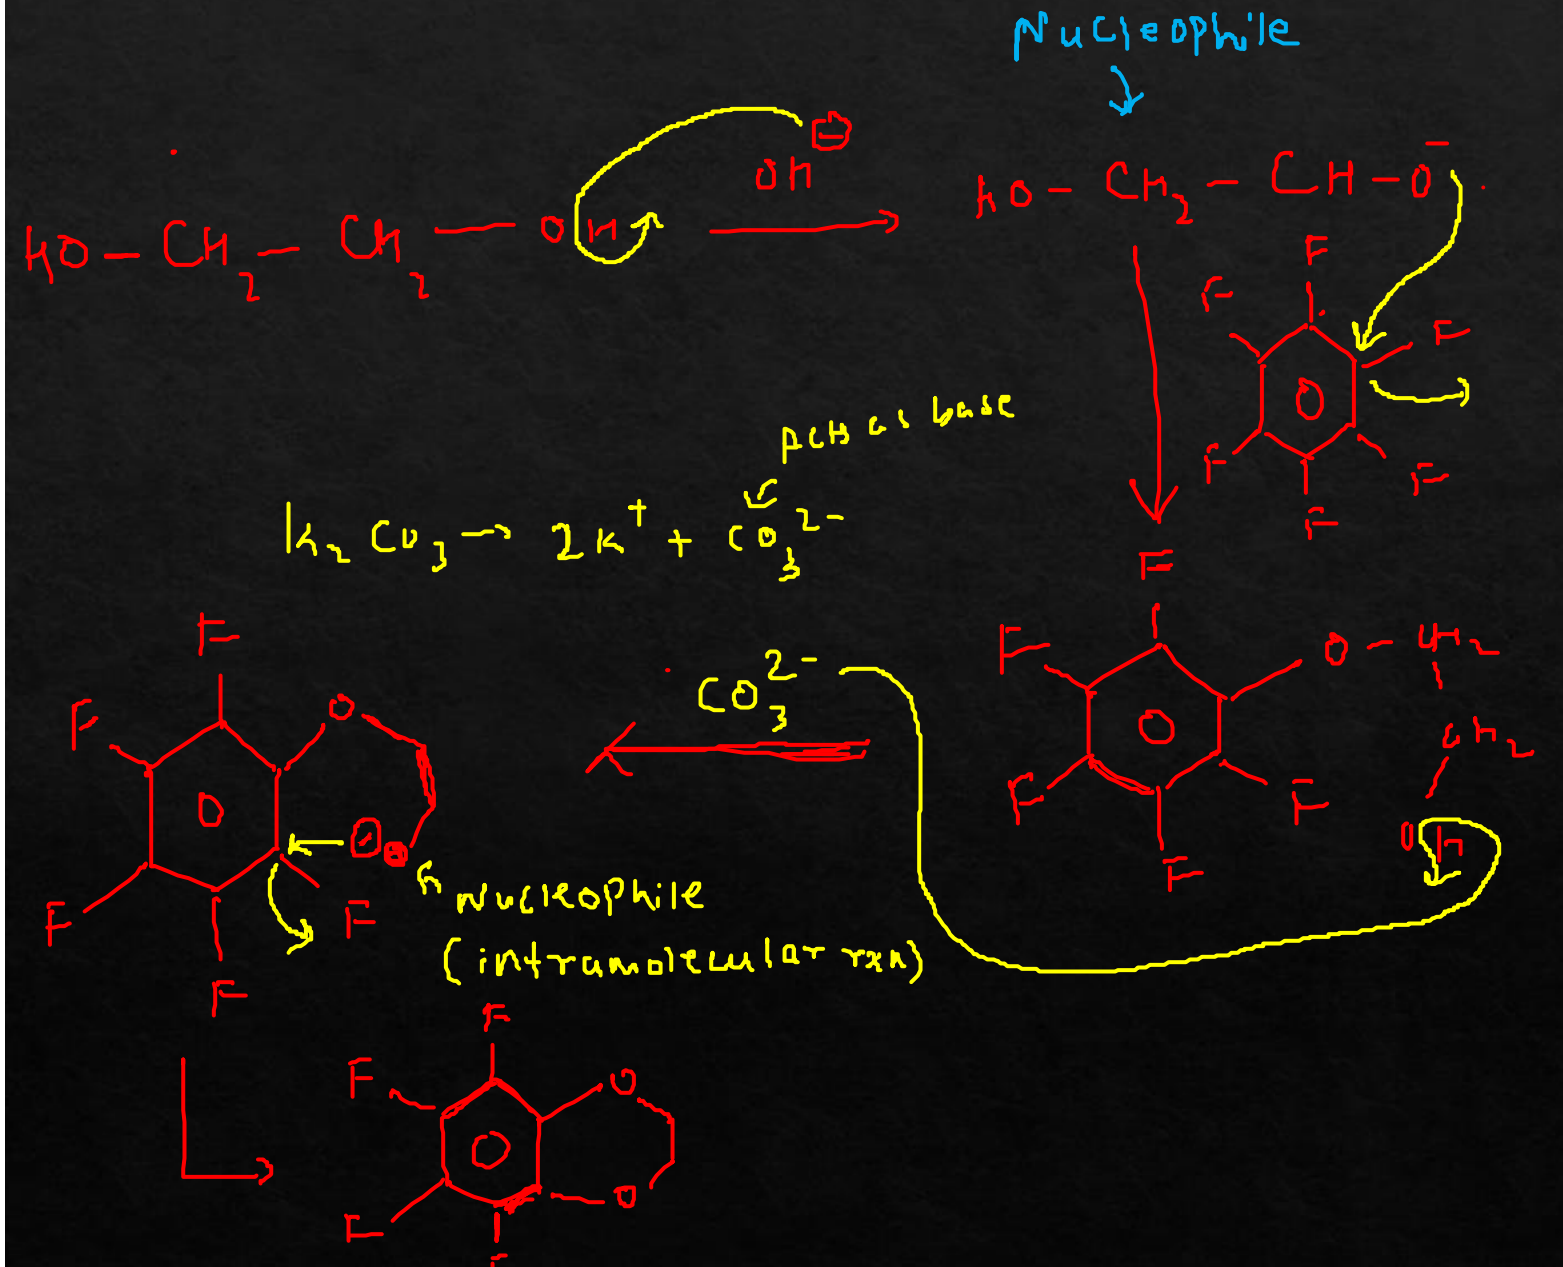 Nucleophile
OH⊖
HO – CH₂ – CH₂ — OH
HO – CH₂ – CH – O⁻
F
F
F
F
F
F
O
acts as base
K₂CO₃ → 2K⁺ + CO₃²⁻
F
F
O – CH₂
CH₂
OH
F
F
F
O
CO₃²⁻
F
F
O
O
O
F
F
F
Nucleophile
(intramolecular rxn)
F
F
O
O
O
F
F